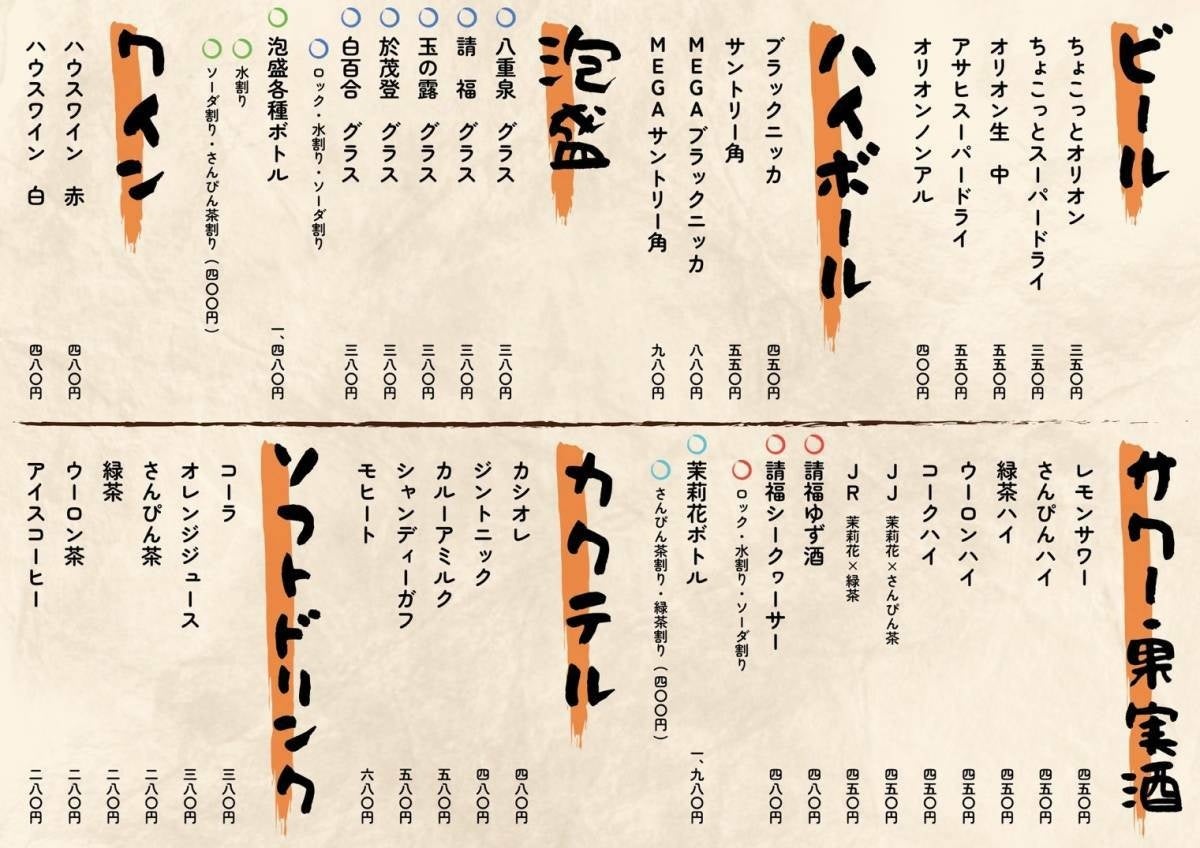 ビール
ちょこっとオリオン 三五〇円
ちょこっとスーパードライ 三五〇円
オリオン生 中 五五〇円
アサヒスーパードライ 五五〇円
オリオンノンアル 四〇〇円
ハイボール
ブラックニッカ 四五〇円
サントリー角 五五〇円
MEGA ブラックニッカ 八八〇円
MEGA サントリー角 九八〇円
泡盛
八重泉 グラス 三八〇円
請福 グラス 三八〇円
玉の露 グラス 三八〇円
於茂登 グラス 三八〇円
白百合 グラス 三八〇円
ロック・水割り・ソーダ割り
泡盛各種ボトル 一、四八〇円
水割り
ソーダ割り・さんぴん茶割り（四〇〇円）
ワイン
ハウスワイン 赤 四八〇円
ハウスワイン 白 四八〇円
サワー・果実酒
レモンサワー 四五〇円
さんぴんハイ 四五〇円
緑茶ハイ 四五〇円
ウーロンハイ 四五〇円
コークハイ 四五〇円
JJ 茉莉花×さんぴん茶 四五〇円
JR 茉莉花×緑茶 四五〇円
請福ゆず酒 四八〇円
請福シークワーサー 四八〇円
ロック・水割り・ソーダ割り
茉莉花ボトル 一、九八〇円
さんぴん茶割り・緑茶割り（四〇〇円）
カクテル
カシオレ 四八〇円
ジントニック 四八〇円
カルーアミルク 五八〇円
シャンディーガフ 五八〇円
モヒート 六八〇円
ソフトドリンク
コーラ 三八〇円
オレンジジュース 三八〇円
さんぴん茶 二八〇円
緑茶 二八〇円
ウーロン茶 二八〇円
アイスコーヒー 二八〇円